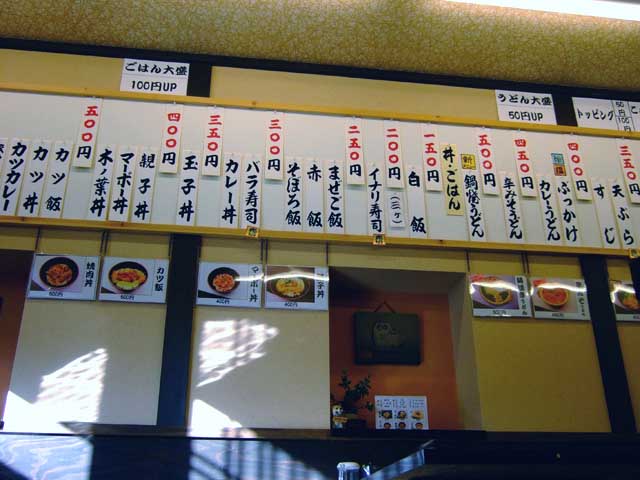 ごはん大盛
100円UP
うどん大盛
50円UP
トッピング
50円
100円
三五〇円
天ぷら
すじ
四〇〇円
ぶっかけ
カレーうどん
四五〇円
辛みそうどん
五〇〇円
鍋焼うどん
新
丼・ごはん
一五〇円
白飯
二〇〇円
イナリ寿司
(三ヶ)
二五〇円
まぜご飯
赤飯
そぼろ飯
三〇〇円
バラ寿司
カレー丼
三五〇円
玉子丼
四〇〇円
親子丼
マーボ丼
木ノ葉丼
五〇〇円
カツ飯
カツ丼
カツカレー
焼肉丼
600円
カツ飯
マーボー丼
400円